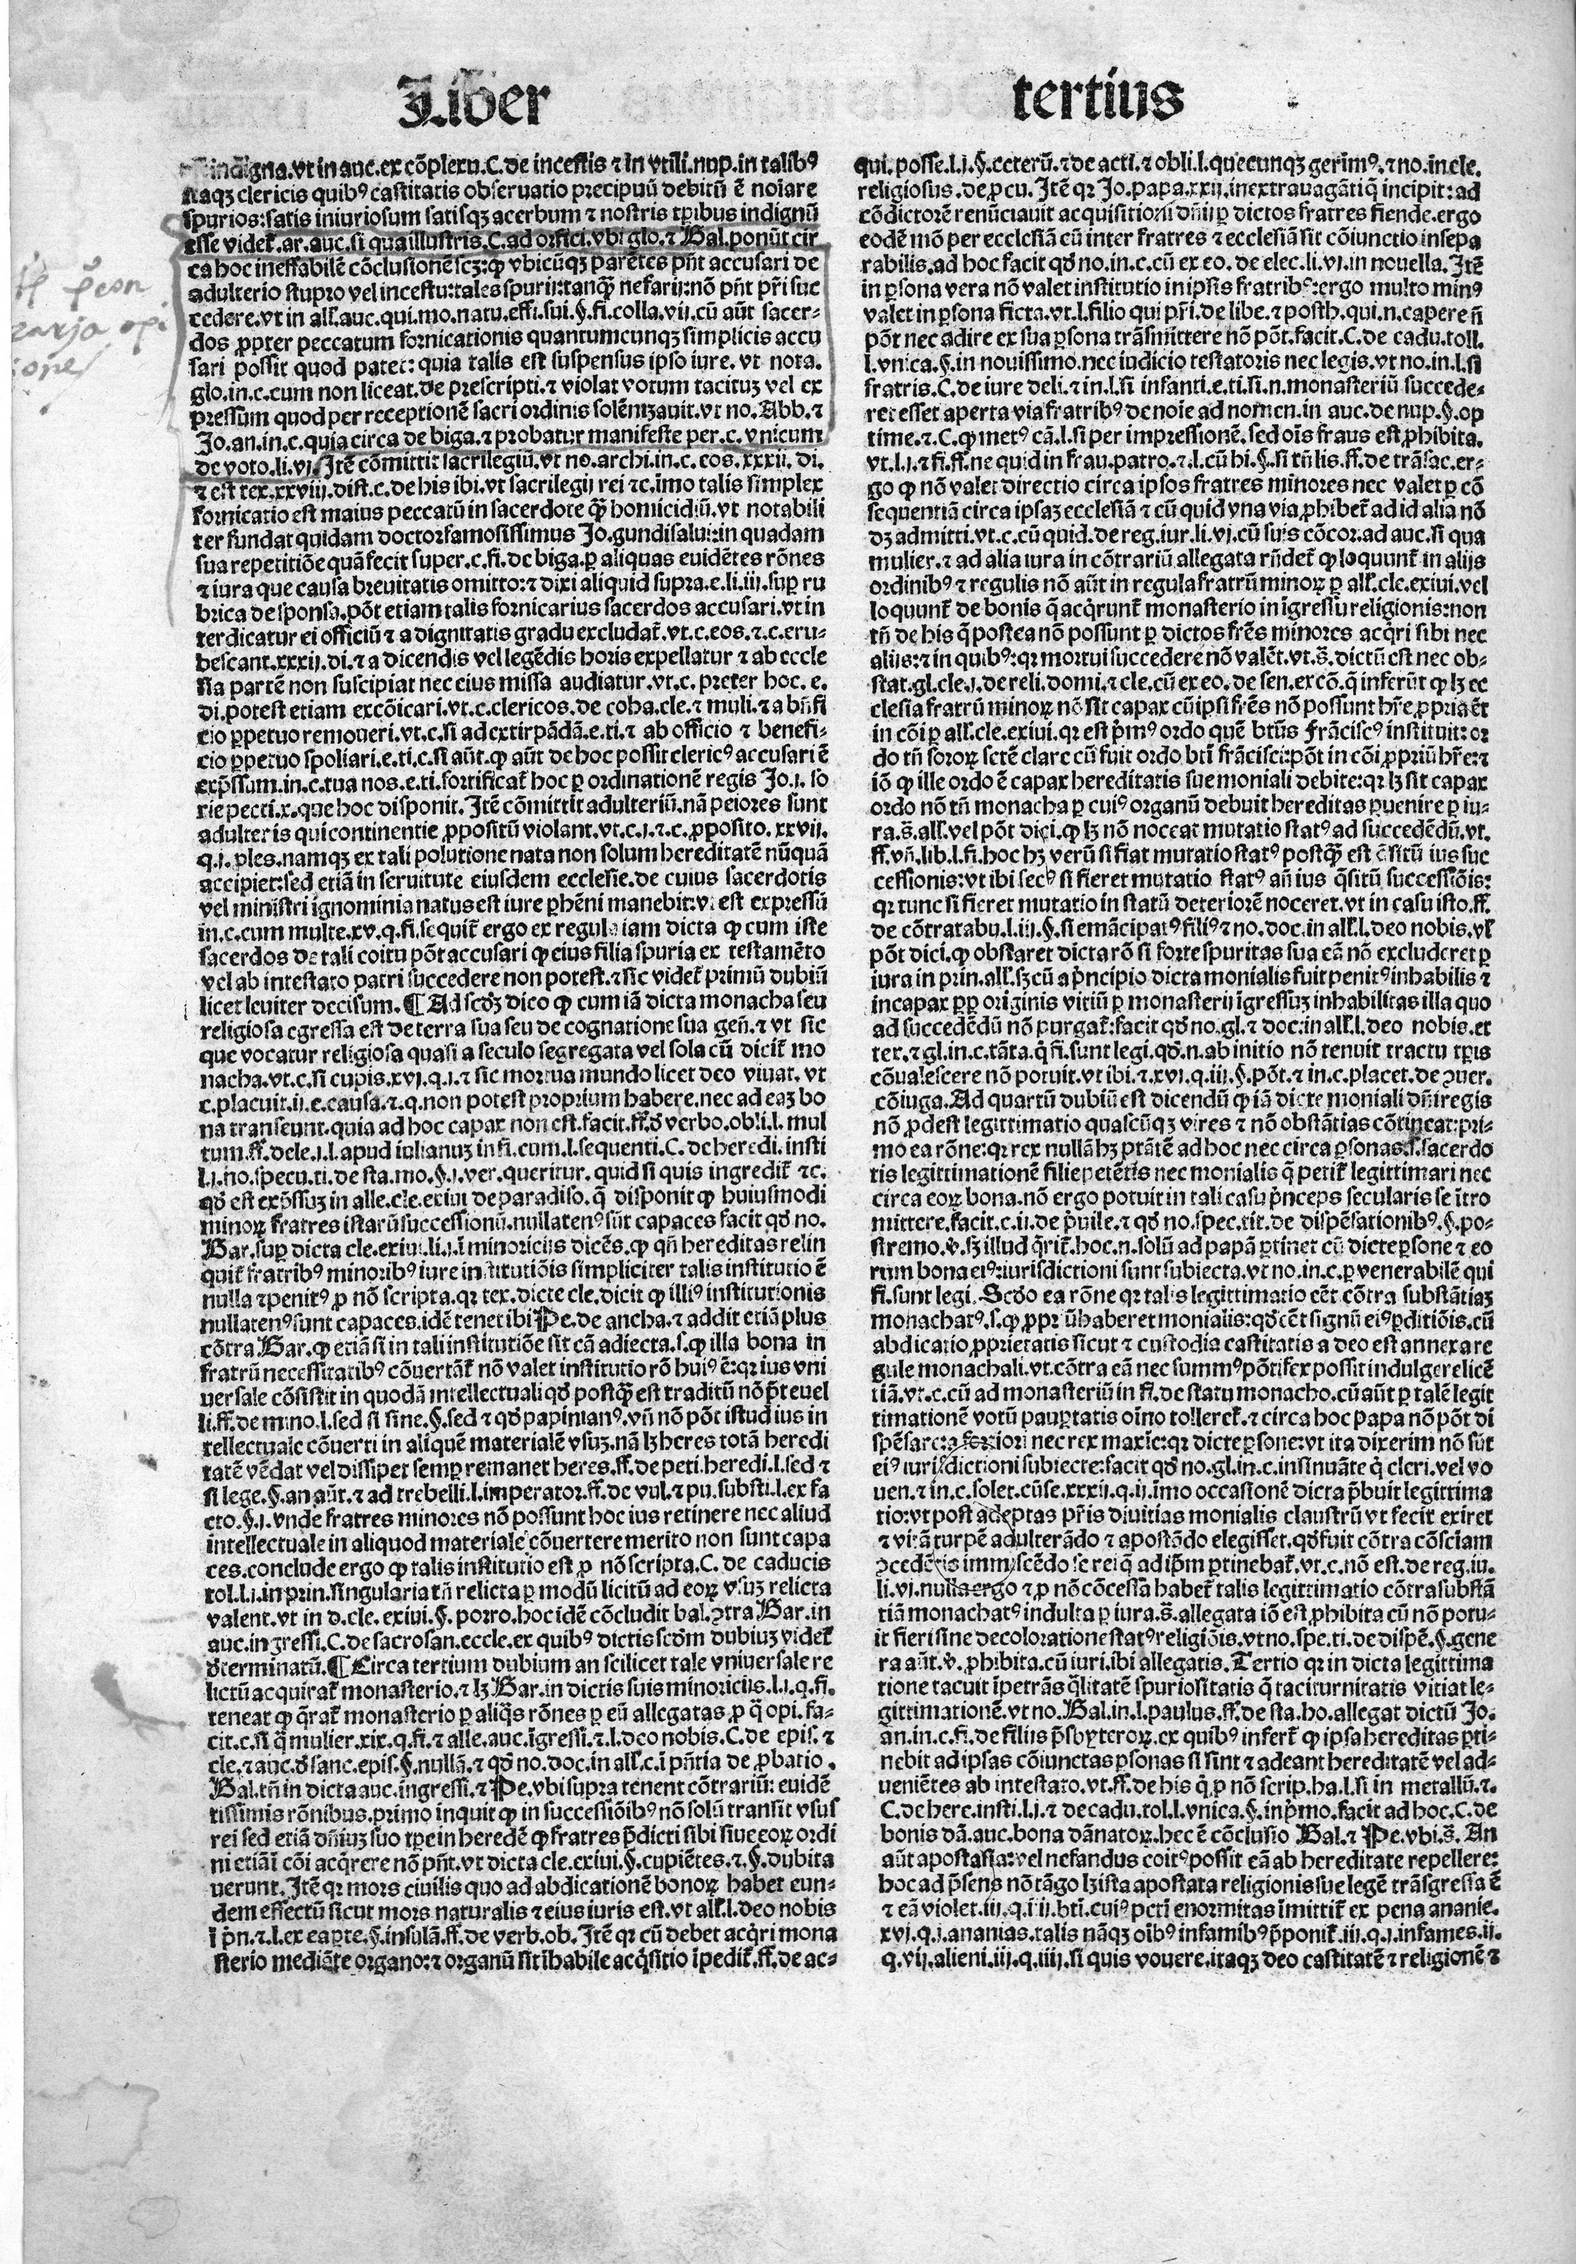 Liber tertius
indigna.vt in auc.ex cõplexu.C.de incestis ⁊ in vtili.nup.in talibꝰ
itaqꝫ clericis quibꝰ castitatis obseruatio precipuũ debitũ ẽ noiare
spurios:satis iniuriosum satisqꝫ acerbum ⁊ nostris tꝑibus indignũ
esse videt̃.ar.auc.si qua illustris.C.ad orfici.vbi glo.⁊ Bal.ponũt cir
ca hoc ineffabilẽ cõclusionẽ scꝫ:ꝙ vbicũqꝫ parẽtes pñt accusari de
adulterio stupro vel incestu:tales spurij:tanqꝫ̃ nefarij:nõ pñt pr̃i suc
cedere.vt in all̃.auc.qui.mo.natu.effi.sui.§.fi.colla.vij.cũ aũt sacer-
dos ꝓpter peccatum fornicationis quantumcunqꝫ simplicis accu
sari possit quod patet: quia talis est suspensus ipso iure. vt nota.
glo.in.c.cum non liceat.de prescripti.⁊ violat votum tacituꝫ vel ex
pressum quod per receptionẽ sacri ordinis solẽnizauit.vt no.Abb.⁊
Jo.an.in.c.quia circa de biga.⁊ probatur manifeste per.c.vnicum
de voto.li.vj.Jtẽ cõmittit sacrilegiũ.vt no.archi.in.c.eos.xxxij.di.
⁊ est tex.xxviij.dist.c.de his ibi.vt sacrilegij rei ⁊c.imo talis simplex
fornicatio est maius peccatũ in sacerdote qꝫ̃ homicidiũ.vt notabili
ter fundat quidam doctor famosissimus Jo.gundisalui:in quadam
sua repetitiõe quã fecit super.c.fi.de biga.ꝑ aliquas euidẽtes rõnes
⁊ iura que causa breuitatis omitto:⁊ dixi aliquid supra.e.li.iij.suꝑ ru
brica de sponsa.põt etiam talis fornicarius sacerdos accusari.vt in
terdicatur ei officiũ ⁊ a dignitatis gradu excludat̃.vt.c.eos.⁊.c.eru-
bescant.xxxij.di.⁊ a dicendis vel legẽdis horis expellatur ⁊ ab eccle
sia partẽ non suscipiat nec eius missa audiatur.vt.c.preter hoc.e.
di.potest etiam excõicari.vt.c.clericos.de coha.cle.⁊ muli.⁊ a bñfi
cio ꝑpetuo remoueri.vt.c.si ad extirpãdã.e.ti.⁊ ab officio ⁊ benefi-
cio ꝑpetuo spoliari.e.ti.c.si aũt.ꝙ aũt de hoc possit clericꝰ accusari ẽ
exp̃ssum.in.c.tua nos.e.ti.fortificat̃ hoc ꝑ ordinationẽ regis Jo.j.so
rie pecti.x.que hoc disponit.Jtẽ cõmittit adulteriũ.nã peiores sunt
adulteris qui continentie ꝓpositũ violant.vt.c.j.⁊.c.ꝓposito.xxvij.
q.j.ples.namqꝫ ex tali polutione nata non solum hereditatẽ nũquã
accipiet:sed etiã in seruitute eiusdem ecclesie.de cuius sacerdotis
vel ministri ignominia natus est iure ꝑhẽni manebit:vt est expressũ
in.c.cum multe.xv.q.fi.sequit̃ ergo ex regula iam dicta ꝙ cum iste
sacerdos de tali coitu põt accusari ꝙ eius filia spuria ex testamẽto
vel ab intestato patri succedere non potest.⁊ sic videt̃ primũ dubiũ
licet leuiter decisum.¶ Ad scd̃ꝫ dico ꝙ cum iã dicta monacha seu
religiosa egressa est de terra sua seu de cognatione sua geñ.⁊ vt sic
que vocatur religiosa quasi a seculo segregata vel sola cũ dicit̃ mo
nacha.vt.c.si cupis.xvj.q.j.⁊ sic mortua mundo licet deo viuat. vt
c.placuit.ij.e.causa.⁊.q.non potest proprium habere.nec ad eaꝫ bo
na transeunt.quia ad hoc capax non est.facit.ff.d̃ verbo.obli.l.mul
tum.ff.de le.j.l.apud iulianuꝫ in fi.cum.l.sequenti.C.de heredi.insti
l.j.no.specu.ti.de sta.mo.§.j.ver.queritur.quid si quis ingredit̃ ⁊c.
qd̃ est exp̃ssuꝫ in alle.cle.exiui de paradiso.q̃ disponit ꝙ huiusmodi
minoꝝ fratres istarũ successionũ.nullatenꝰ sũt capaces facit qd̃ no.
Bar.suꝑ dicta cle.exiui.li.j.ĩ minoricijs dicẽs.ꝙ qñ hereditas relin
quit̃ fratribꝰ minoribꝰ iure institutiõis simpliciter talis institutio ẽ
nulla ⁊ penitꝰ ꝓ nõ scripta.qꝛ tex.dicte cle.dicit ꝙ illiꝰ institutionis
nullatenꝰ sunt capaces.idẽ tenet ibi Pe.de ancha.⁊ addit etiã plus
cõtra Bar.ꝙ etiã si in tali institutiõe sit cã adiecta.s.ꝙ illa bona in
fratrũ necessitatibꝰ cõuertãt̃ nõ valet institutio rõ huiꝰ ẽ:qꝛ ius vni
uersale cõsistit in quodã intellectuali qd̃ postqꝫ̃ est traditũ nõ p̃t euel
li.ff.de mino.l.sed si sine.§.sed ⁊ qd̃ papinianꝰ.vñ nõ põt istud ius in
tellectuale cõuerti in aliquẽ materialẽ vsuꝫ.nã lꝫ heres totã heredi
tatẽ vẽdat vel dissipet semꝑ remanet heres.ff.de peti.heredi.l.sed ⁊
si lege.§.an aũt.⁊ ad trebelli.l.imperator.ff.de vul.⁊ pu.substi.l.ex fa
cto.§.j.vnde fratres minores nõ possunt hoc ius retinere nec aliud
intellectuale in aliquod materiale cõuertere merito non sunt capa
ces.conclude ergo ꝙ talis institutio est ꝓ nõ scripta.C.de caducis
tol.l.j.in prin.singularia tñ relicta ꝑ modũ licitũ ad eoꝝ vsuꝫ relicta
valent.vt in d.cle.exiui.§.porro.hoc idẽ cõcludit bal.ↄtra Bar.in
auc.ingressi.C.de sacrosan.eccle.ex quibꝰ dictis scd̃m dubiuꝫ videt̃
d̃terminatũ.¶ Circa tertium dubium an scilicet tale vniuersale re
lictũ acquirat̃ monasterio.⁊ lꝫ Bar.in dictis suis minoricijs.l.j.q.fi.
teneat ꝙ q̃rat̃ monasterio ꝑ aliq̃s rõnes ꝑ eũ allegatas.ꝓ q̃ opi.fa-
cit.c.si q̃ mulier.xix.q.fi.⁊ alle.auc.ĩgressi.⁊.l.deo nobis.C.de epis.⁊
cle.⁊ auc.d̃ sanc.epis.§.nullã.⁊ qd̃ no.doc.in all̃.c.ĩ pñtia de ꝓbatio.
Bal.tñ in dicta auc.ingressi.⁊ Pe.vbi supra tenent cõtrariũ: euidẽ
tissimis rõnibus.primo inquit ꝙ in successiõibꝰ nõ solũ transit vsus
rei sed etiã dñiuꝫ suo tꝑe in heredẽ ꝙ fratres p̃dicti sibi siue eoꝝ ordi
ni etiã ĩ cõi acq̃rere nõ pñt.vt dicta cle.exiui.§.cupiẽtes.⁊.§.dubita
uerunt.Jtẽ qꝛ mors ciuilis quo ad abdicationẽ bonoꝝ habet eun-
dem effectũ sicut mors naturalis ⁊ eius iuris est.vt all̃.l.deo nobis
ĩ pñ.⁊.l.ex ea parte.§.insulã.ff.de verb.ob.Jtẽ qꝛ cũ debet acq̃ri mona
sterio mediãte organo:⁊ organũ sit ĩhabile acq̃sitio ĩpedit̃.ff.de ac-
qui.posse.l.j.§.ceterũ.⁊ de acti.⁊ obli.l.quecunqꝫ gerimꝰ.⁊ no.in cle.
religiosus.de ꝓcu.Jtẽ qꝛ Jo.papa.xxij.in extrauagãti q̃ incipit:ad
cõdictorẽ renũciauit acquisitioni dñij ꝑ dictos fratres fiende.ergo
eodẽ mõ per ecclesiã cũ inter fratres ⁊ ecclesiã sit cõiunctio insepa
rabilis.ad hoc facit qd̃ no.in.c.cũ ex eo.de elec.li.vj.in nouella.Jtẽ
in ꝑsona vera nõ valet institutio in ipsis fratribꝰ:ergo multo minꝰ
valet in ꝑsona ficta.vt.l.filio qui pr̃i.de libe.⁊ posth.qui.n.capere ñ
põt nec adire ex sua ꝑsona trãsmittere nõ põt.facit.C.de cadu.toll.
l.vnica.§.in nouissimo.nec iudicio testatoris nec legis.vt no.in.l.si
fratris.C.de iure deli.⁊ in.l.si infanti.e.ti.si.n.monasteriũ succede-
ret esset aperta via fratribꝰ de noĩe ad nomen.in auc.de nup.§.op
time.⁊.C.ꝙ metꝰ cã.l.si per impressionẽ.sed oĩs fraus est ꝓhibita.
vt.l.j.⁊ fi.ff.ne quid in frau.patro.⁊.l.cũ hi.§.si tñ lis.ff.de trãsac.er-
go ꝙ nõ valet directio circa ipsos fratres minores nec valet ꝑ cõ
sequentiã circa ipsaꝫ ecclesiã ⁊ cũ quid vna via ꝓhibet̃ ad id alia nõ
dꝫ admitti.vt.c.cũ quid.de reg.iur.li.vj.cũ suis cõcor.ad auc.si qua
mulier.⁊ ad alia iura in cõtrariũ allegata rñdet̃ ꝙ loquunt̃ in alijs
ordinibꝰ ⁊ regulis nõ aũt in regula fratrũ minoꝝ ꝑ all̃.cle.exiui.vel
loquunt̃ de bonis q̃ acq̃runt̃ monasterio in ĩgressu religionis:non
tñ de his q̃ postea nõ possunt ꝑ dictos fr̃es minores acq̃ri sibi nec
alijs:⁊ in quibꝰ:qꝛ mortui succedere nõ valẽt.vt.s̃.dictũ est nec ob-
stat.gl.cle.j.de reli.domi.⁊ cle.cũ ex eo.de sen.excõ.q̃ inferũt ꝙ lꝫ ec
clesia fratrũ minoꝝ nõ sit capax cũ ipsi fr̃es nõ possunt hr̃e ꝓpria ẽt
in cõi ꝑ all̃.cle.exiui.qꝛ est p̃mꝰ ordo quẽ btũs frãciscꝰ instituit:or
do tñ soroꝝ sctẽ clare cũ fuit ordo bti frãcisci:põt in cõi ꝓpriũ hr̃e:⁊
iõ ꝙ ille ordo ẽ capax hereditatis sue moniali debite:qꝛ lꝫ sit capax
ordo nõ tñ monacha ꝑ cuiꝰ organũ debuit hereditas ꝑuenire ꝑ iu-
ra.s̃.all̃.vel põt dici.ꝙ lꝫ nõ noceat mutatio statꝰ ad succedẽdũ.vt.
ff.vñ.lib.l.fi.hoc hꝫ verũ si fiat mutatio statꝰ postqꝫ̃ est q̃sitũ ius suc
cessionis:vt ibi secꝰ si fieret mutatio statꝰ añ ius q̃sitũ successiõis:
qꝛ tunc si fieret mutatio in statũ deteriorẽ noceret.vt in casu isto.ff.
de cõtratabu.l.iij.§.si emãcipatꝰ filiꝰ ⁊ no.doc.in all̃.l.deo nobis.vl̃
põt dici.ꝙ obstaret dicta rõ si forte spuritas sua eã nõ excluderet ꝑ
iura in prin.all̃.sꝫ cũ a p̃ncipio dicta monialis fuit penitꝰ inhabilis ⁊
incapax ꝓpꝑ originis vitiũ ꝑ monasterij ĩgressuꝫ inhabilitas illa quo
ad succedẽdũ nõ purgat̃:facit qd̃ no.gl.⁊ doc:in all̃.l.deo nobis.et
tex.⁊ gl.in.c.tãta.q̃ fi.sunt legi.qd̃.n.ab initio nõ tenuit tractu tꝑis
cõualescere nõ potuit.vt ibi ⁊.xvj.q.iij.§.põt.⁊ in.c.placet.de ↄuer.
cõiuga.Ad quartũ dubiũ est dicendũ ꝙ iã dicte moniali dñi regis
nõ ꝓdest legittimatio quascũqꝫ vires ⁊ nõ obstãtias cõtineat:pri-
mo ea rõne:qꝛ rex nullã hꝫ ptãtẽ ad hoc nec circa ꝑsonas.s.sacerdo
tis legittimationẽ filie petẽtis nec monialis q̃ petit̃ legittimari nec
circa eoꝝ bona.nõ ergo potuit in tali casu p̃nceps secularis se ĩtro
mittere.facit.c.ij.de p̃uile.⁊ qd̃ no.spec.tit.de dispẽsationibꝰ.§.po-
stremo.v̉.sꝫ illud q̃rit̃.hoc.n.solũ ad papã ꝑtinet cũ dicte ꝑsone ⁊ eo
rum bona eiꝰ:iurisdictioni sunt subiecta.vt no.in.c.ꝑ venerabilẽ qui
fi.sunt legi.Scd̃o ea rõne qꝛ talis legittimatio eẽt cõtra substãtiaꝫ
monachatꝰ.s.ꝙ ꝓpriũ haberet monialis:qd̃ eẽt signũ eiꝰ ꝑditiõis.cũ
abdicatio ꝓprietatis sicut ⁊ custodia castitatis a deo est annexa re
gule monachali.vt cõtra eã nec summꝰ põtifex possit indulgere licẽ
tiã.vt.c.cũ ad monasteriũ in fi.de statu monacho.cũ aũt ꝑ talẽ legit
timationẽ votũ pauꝑtatis oĩno tolleret̃.⁊ circa hoc papa nõ põt di
spẽsare:a fortiori nec rex maxie:qꝛ dicte ꝑsone:vt ita dixerim nõ sũt
eiꝰ iurisdictioni subiecte:facit qd̃ no.gl.in.c.insinuãte q̃ cleri.vel vo
uen.⁊ in.c.solet.cũ se.xxxij.q.ij.ĩmo occasionẽ dicta p̃buit legittima
tio:vt post adeptas pr̃is diuitias monialis claustrũ vt fecit exiret
⁊ vitã turpẽ adulterãdo ⁊ apostãdo elegisset.qd̃ fuit cõtra cõsciam
ↄcedẽtis immiscẽdo se rei q̃ ad ip̃m ꝑtinebat̃.vt.c.nõ est.de reg.iu.
li.vj.nulla ergo ⁊ ꝓ nõ cõcessa habet̃ talis legittimatio cõtra substã
tiã monachatꝰ indulta ꝑ iura.s̃.allegata iõ est ꝓhibita cũ nõ potu-
it fieri sine decoloratione statꝰ religiõis.vt no.spe.ti.de dispẽ.§.gene
ra aũt.v̉.ꝓhibita.cũ iuri.ibi allegatis.Tertio qꝛ in dicta legittima
tione tacuit ĩpetrãs q̃litatẽ spuriositatis q̃ taciturnitatis vitiat le-
gittimationẽ.vt no.Bal.in.l.paulus.ff.de sta.ho.allegat dictũ Jo.
an.in.c.fi.de filijs p̃sbyteroꝝ.ex quibꝰ infert̃ ꝙ ipsa hereditas ꝑti-
nebit ad ipsas cõiunctas ꝑsonas si sint ⁊ adeant hereditatẽ vel ad-
ueniẽtes ab intestato.vt.ff.de his q̃ ꝓ nõ scrip.ha.l.si in metallũ.⁊.
C.de here.insti.l.j.⁊ de cadu.tol.l.vnica.§.in p̃mo.facit ad hoc.C.de
bonis dã.auc.bona dãnatoꝝ.hec ẽ cõclusio Bal.⁊ Pe.vbi.s̃.An
aũt apostasia:vel nefandus coitꝰ possit eã ab hereditate repellere:
hoc ad p̃sens nõ tãgo lꝫ ista apostata religionis sue legẽ trãsgressa ẽ
⁊ eã violet.iij.q.iiij.bti.cuiꝰ pcti enormitas ĩmittit̃ ex pena ananie.
xvj.q.j.ananias.talis nãqꝫ oĩbꝰ infamibꝰ p̃ponit̃.iij.q.j.infames.ij.
q.vij.alieni.iij.q.iiij.si quis vouere.itaqꝫ deo castitatẽ ⁊ religionẽ ⁊